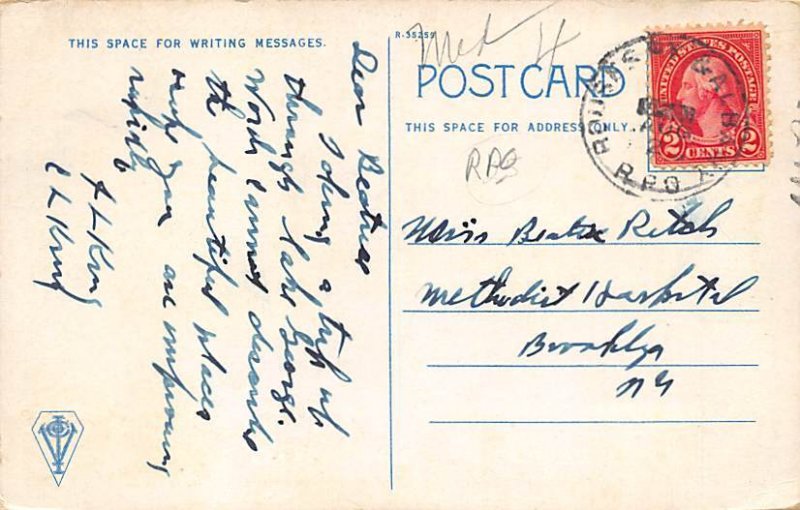 THIS SPACE FOR WRITING MESSAGES.
Dear Beatrice
I doing a trip up
through Lake George.
Words cannot describe
the beautiful places
hope you are improving
rapidly
A L King
C L King
R-35259
Med 4
POST CARD
THIS SPACE FOR ADDRESS ONLY.
RPO
UNITED STATES POSTAGE
2 CENTS 2
R.P.O.
Miss Beatrice Retch
Methodist Hospital
Brooklyn
NY